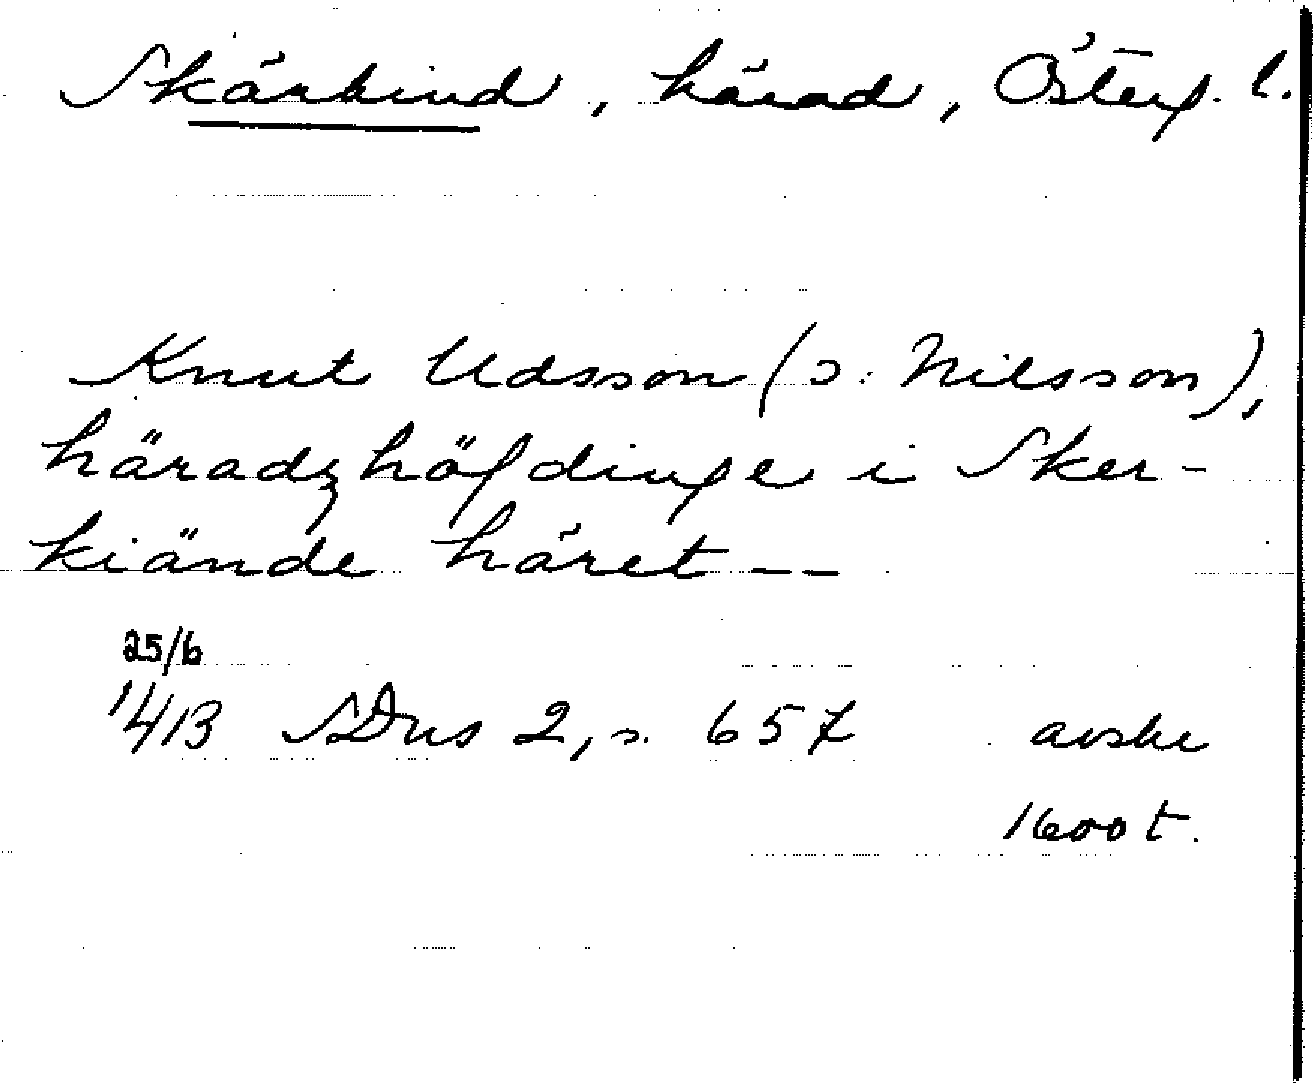 Skärkind, härad, Österg. l.
Knut Udsson (o: Nilsson),
häradzhöfdinge i Sker-
kiände häret --
25/6
1413 SDns 2, s. 657 avskr
1600 t.